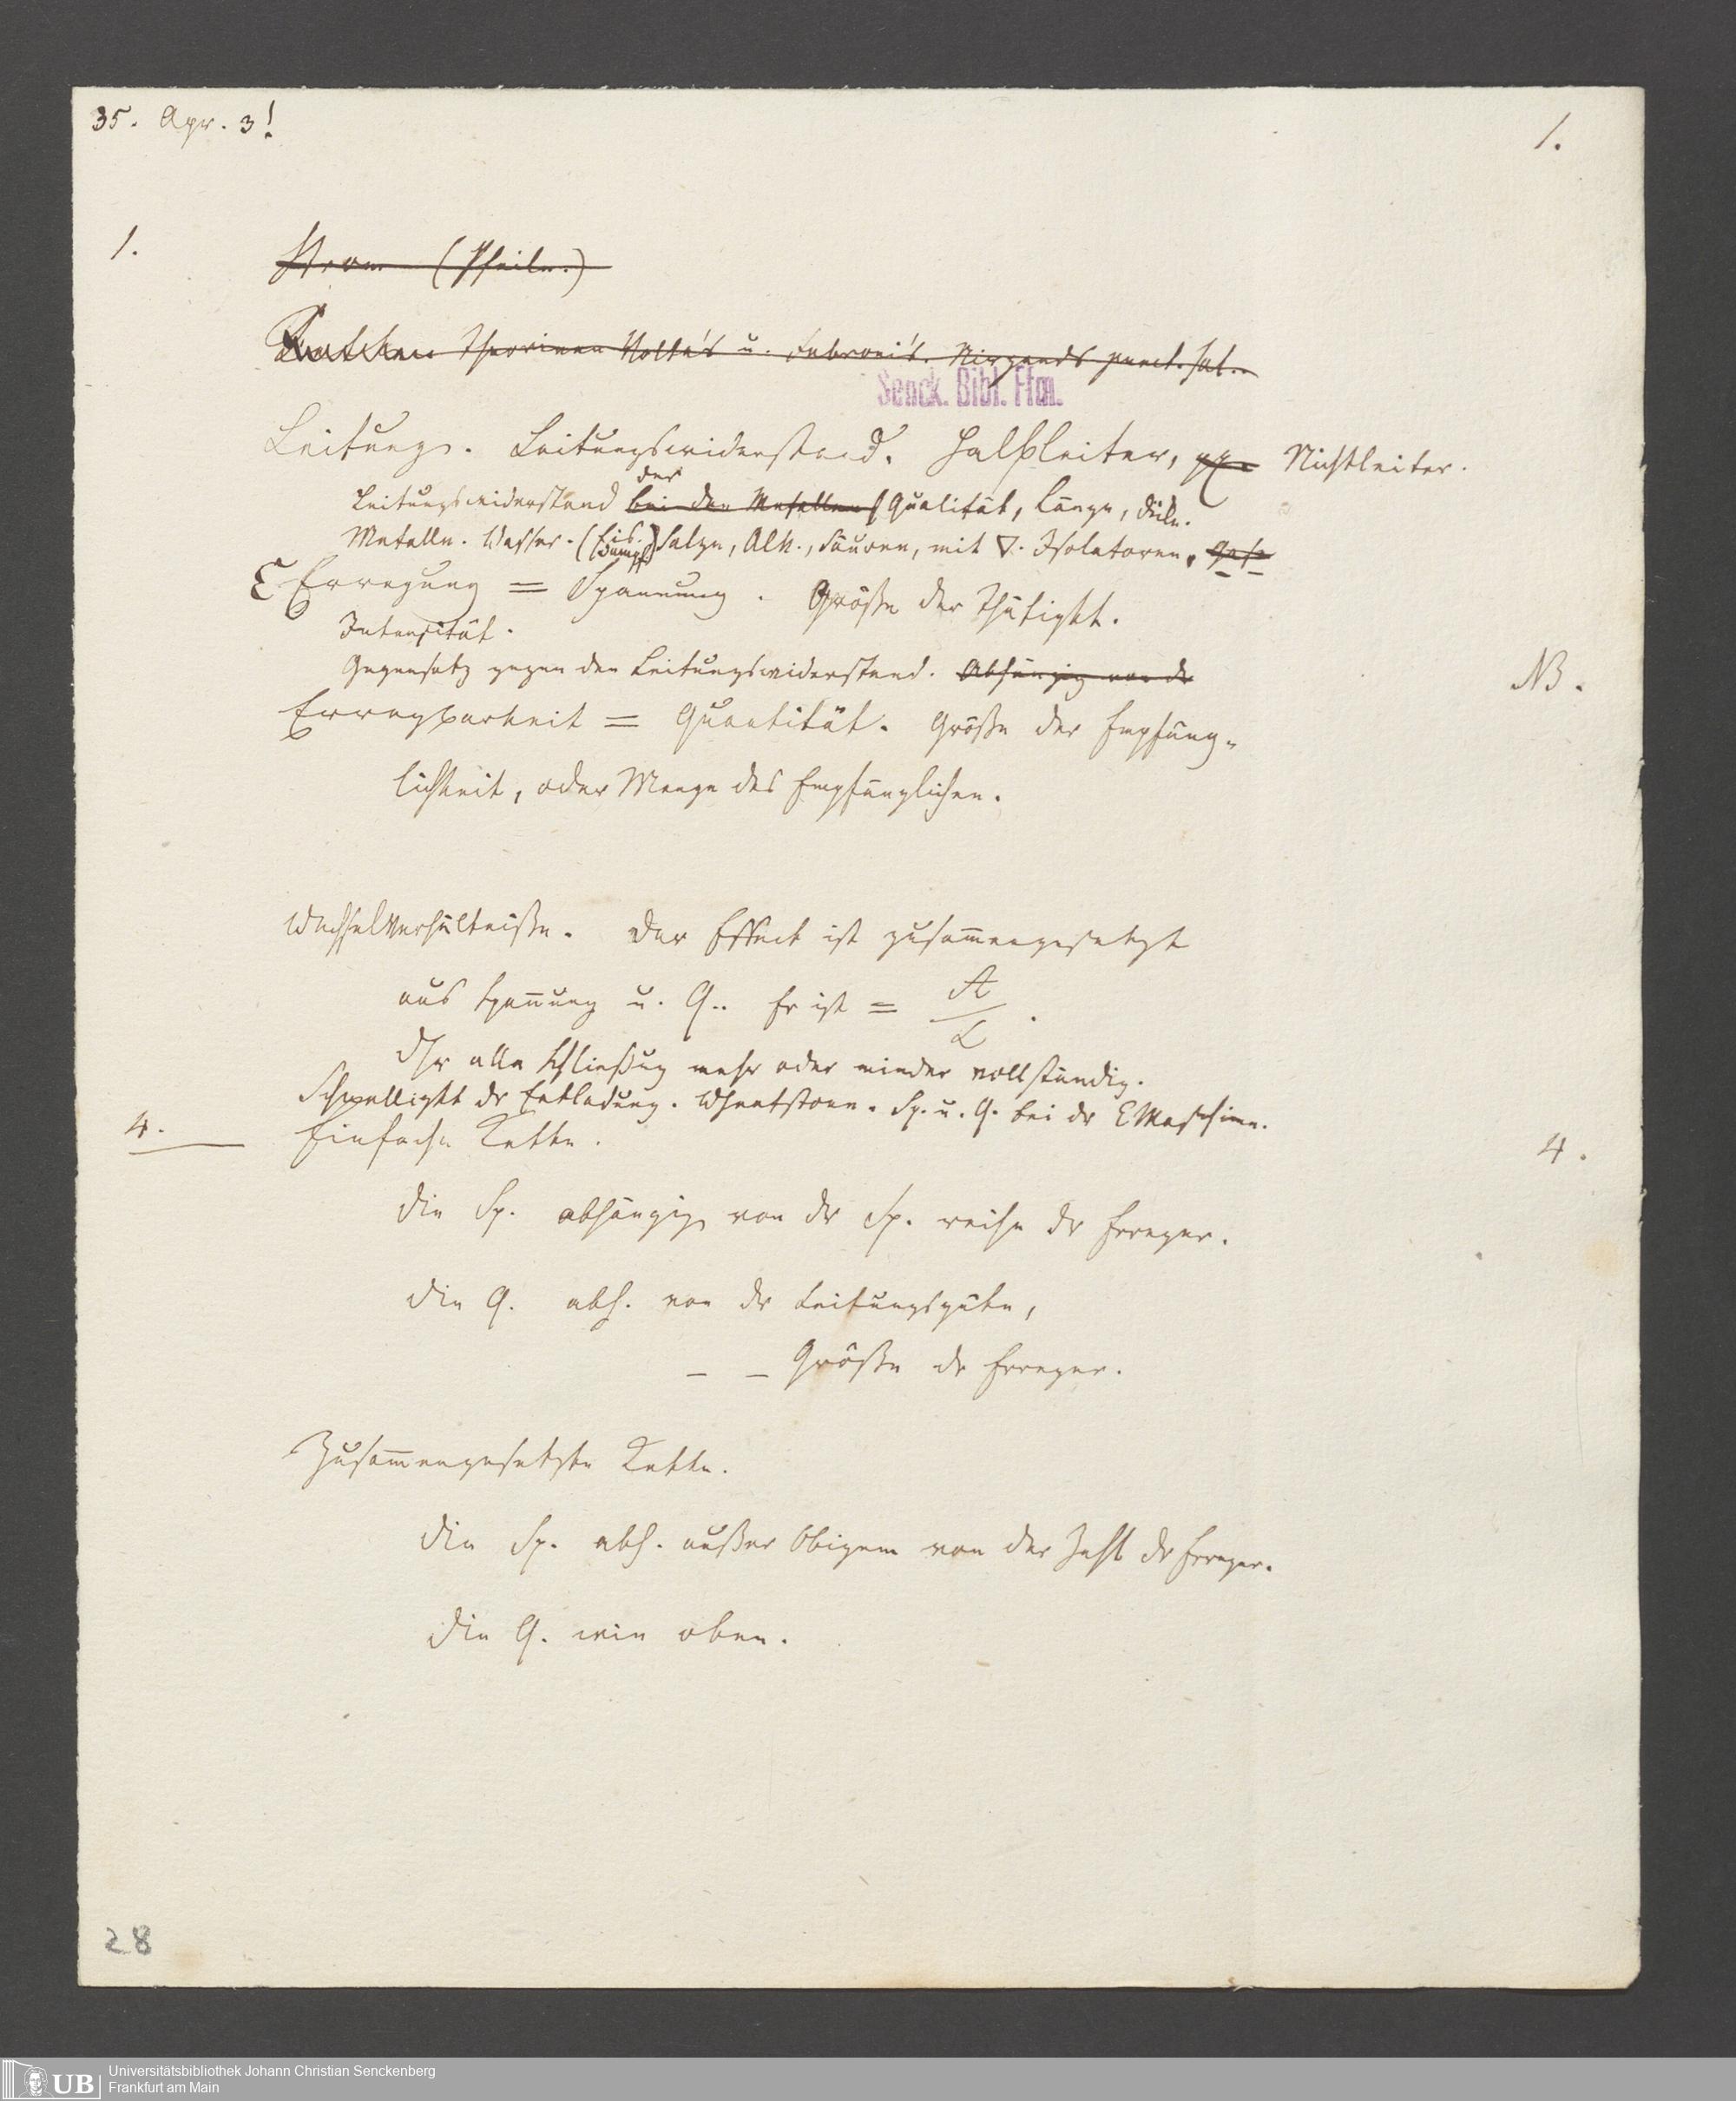 35. Apr. 3!
1.
1.
Strom (Theile.)
Theorieen Volta's u. Fabroni's. Nirgends punct. sal..
Senck. Bibl. Ffm.
Leitung. Leitungswiderstand. Halbleiter, Nichtleiter.
der
Leitungswiderstand bei den Metallen Qualität, Länge, Dicke.
Metalle. Wasser. (Eis. Dampf) Salze, Alk., Säuren, mit ▽. Isolatoren.
Erregung = Spannung. Größe der Thätigkt.
Intensität.
Gegensatz gegen den Leitungswiderstand. Abhängig von dr
NB.
Erregbarkeit = Quantität. Größe der Empfäng-
lichkeit, oder Menge des Empfänglichen.
Wechselverhältniße. Der Effect ist zusam̅engesetzt
aus Span̅ung u. Q.. Er ist = A/L.
Ihr alle Schließung mehr oder minder vollständig.
Schnelligkt dr Entladung. Wheatstone. Sp. u. Q. bei dr E Maschine.
4.
Einfache Kette.
4.
Die Sp. abhängig von dr Sp. reihe dr Erreger.
Die Q. abh. von dr Leitungsgüte,
_ _ Größe dr Erreger.
Zusam̅engesetzte Kette.
Die Sp. abh. außer Obigem von der Zahl dr Erreger.
Die Q. wie oben.
28
UB
Universitätsbibliothek Johann Christian Senckenberg
Frankfurt am Main